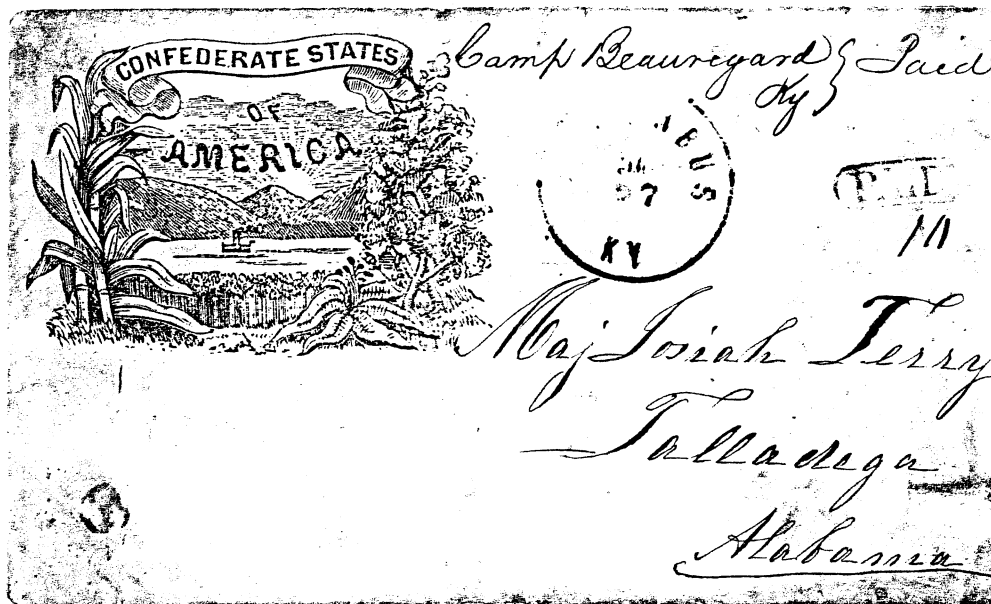 CONFEDERATE STATES
OF
AMERICA
Camp Beauregard } Paid
Ky
27
KY
10
Maj Josiah Terry
Talladega
Alabama